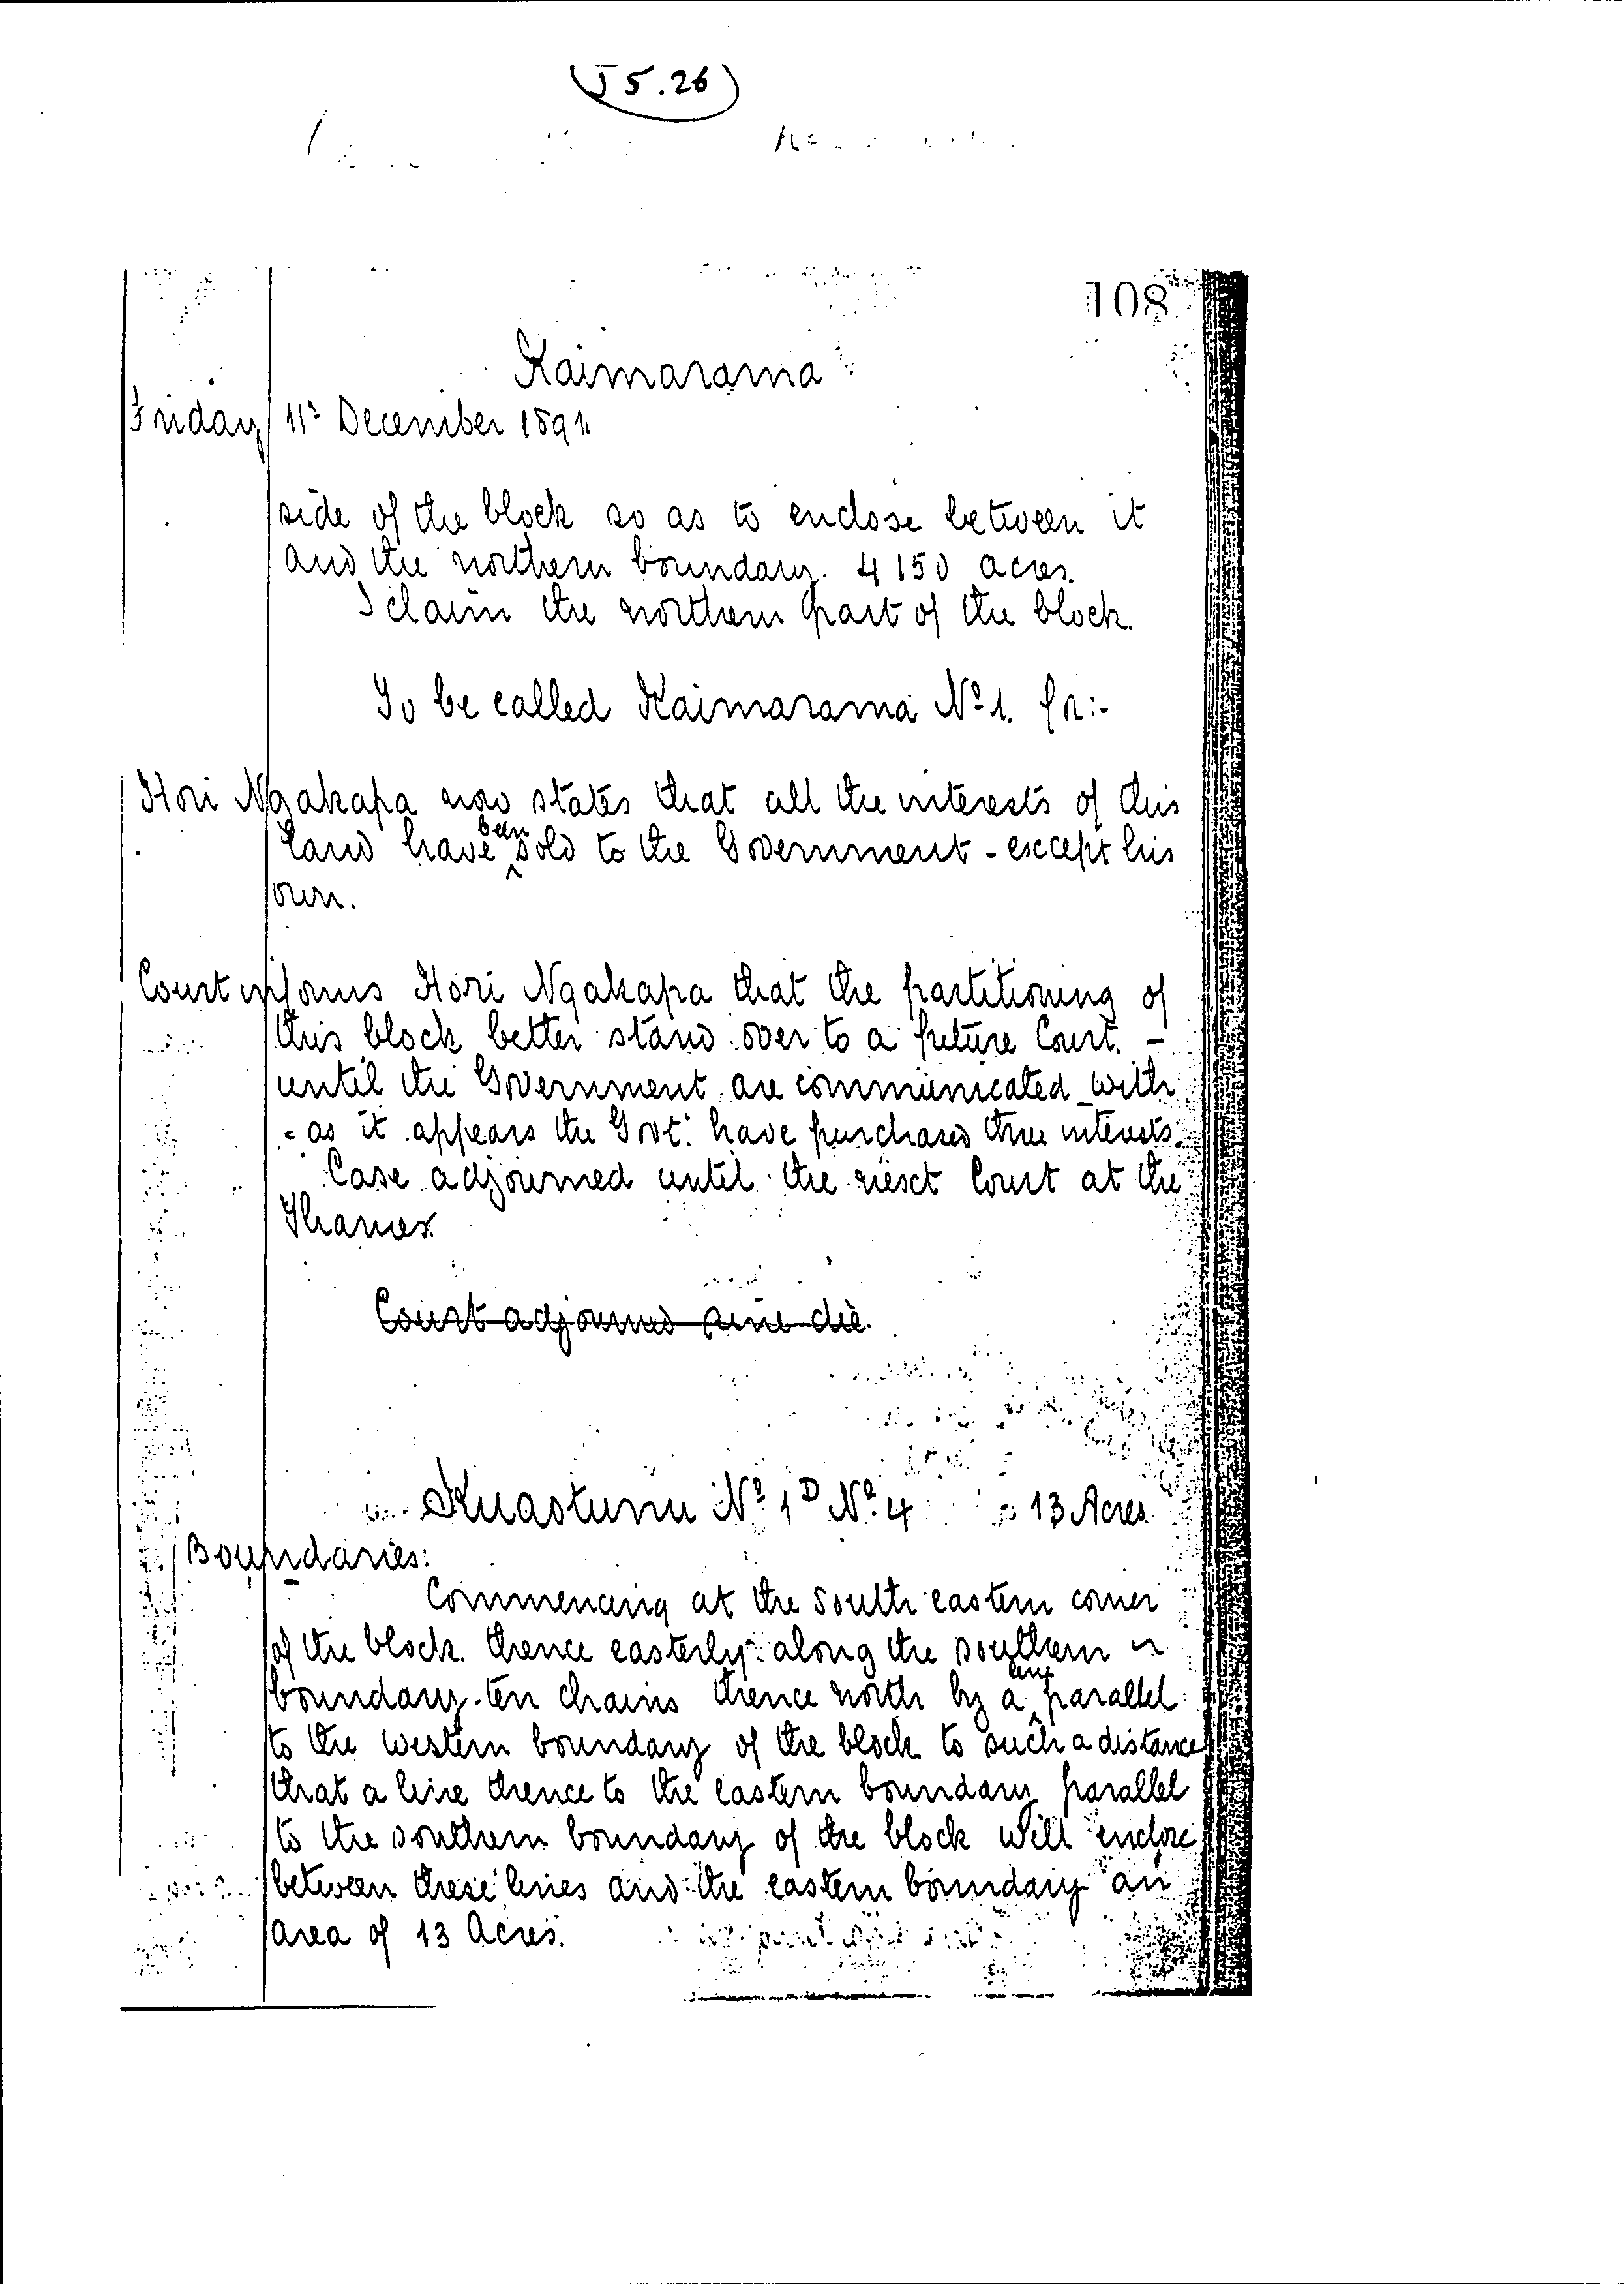 J 5.26
108
Kaimarama
Friday 11th December 1891
side of the block so as to enclose between it
and the northern boundary. 4150 acres.
I claim the northern part of the block.
To be called Kaimarama No 1.
Hori Ngakapa now states that all the interests of this
land have been sold to the Government - except his
own.
Court informs Hori Ngakapa that the partitioning of
this block better stand over to a future Court. -
until the Government are communicated with
- as it appears the Govt. have purchased interests.
Case adjourned until the next Court at the
Thames.
Court adjourned sine die.
Kuaotunu No 1D No 4 13 Acres.
Boundaries:
Commencing at the South eastern corner
of the block. thence easterly along the southern
boundary ten chains thence north by a line parallel
to the western boundary of the block to such a distance
that a line thence to the eastern boundary parallel
to the southern boundary of the block will enclose
between these lines and the eastern boundary an
area of 13 Acres.